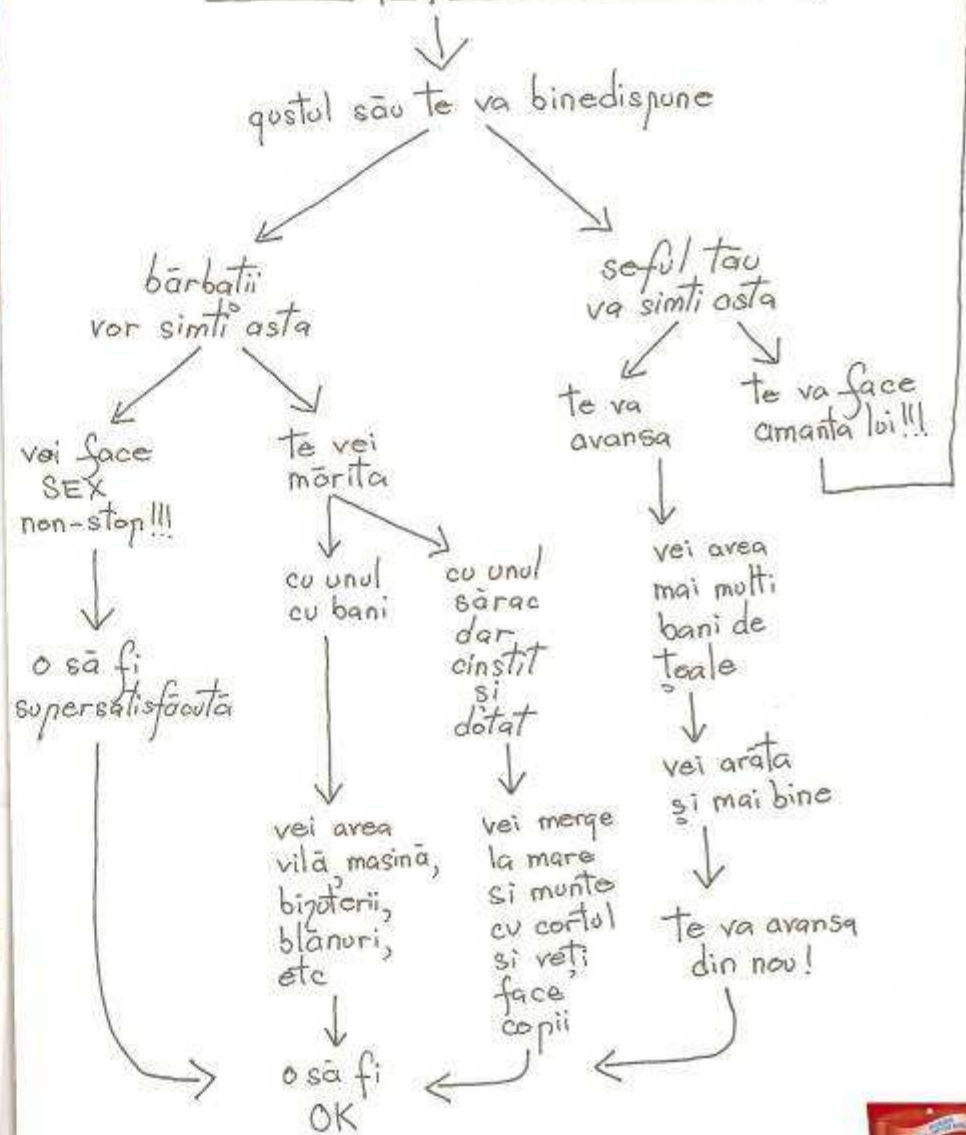 gustul său te va binedispune
bărbatii
vor simți asta
seful tău
va simti asta
vei face
SEX
non-stop!!!
te vei
mărita
te va
avansa
te va face
amanta lui!!!
cu unul
cu bani
cu unul
sărac
dar
cinstit
si
dotat
vei avea
mai multi
bani de
țoale
o să fi
supersatisfăcută
vei arăta
și mai bine
vei avea
vilă, masină,
bijuterii,
blănuri,
etc
vei merge
la mare
si munte
cu cortul
si veți
face
copii
te va avansa
din nou!
o să fi
OK